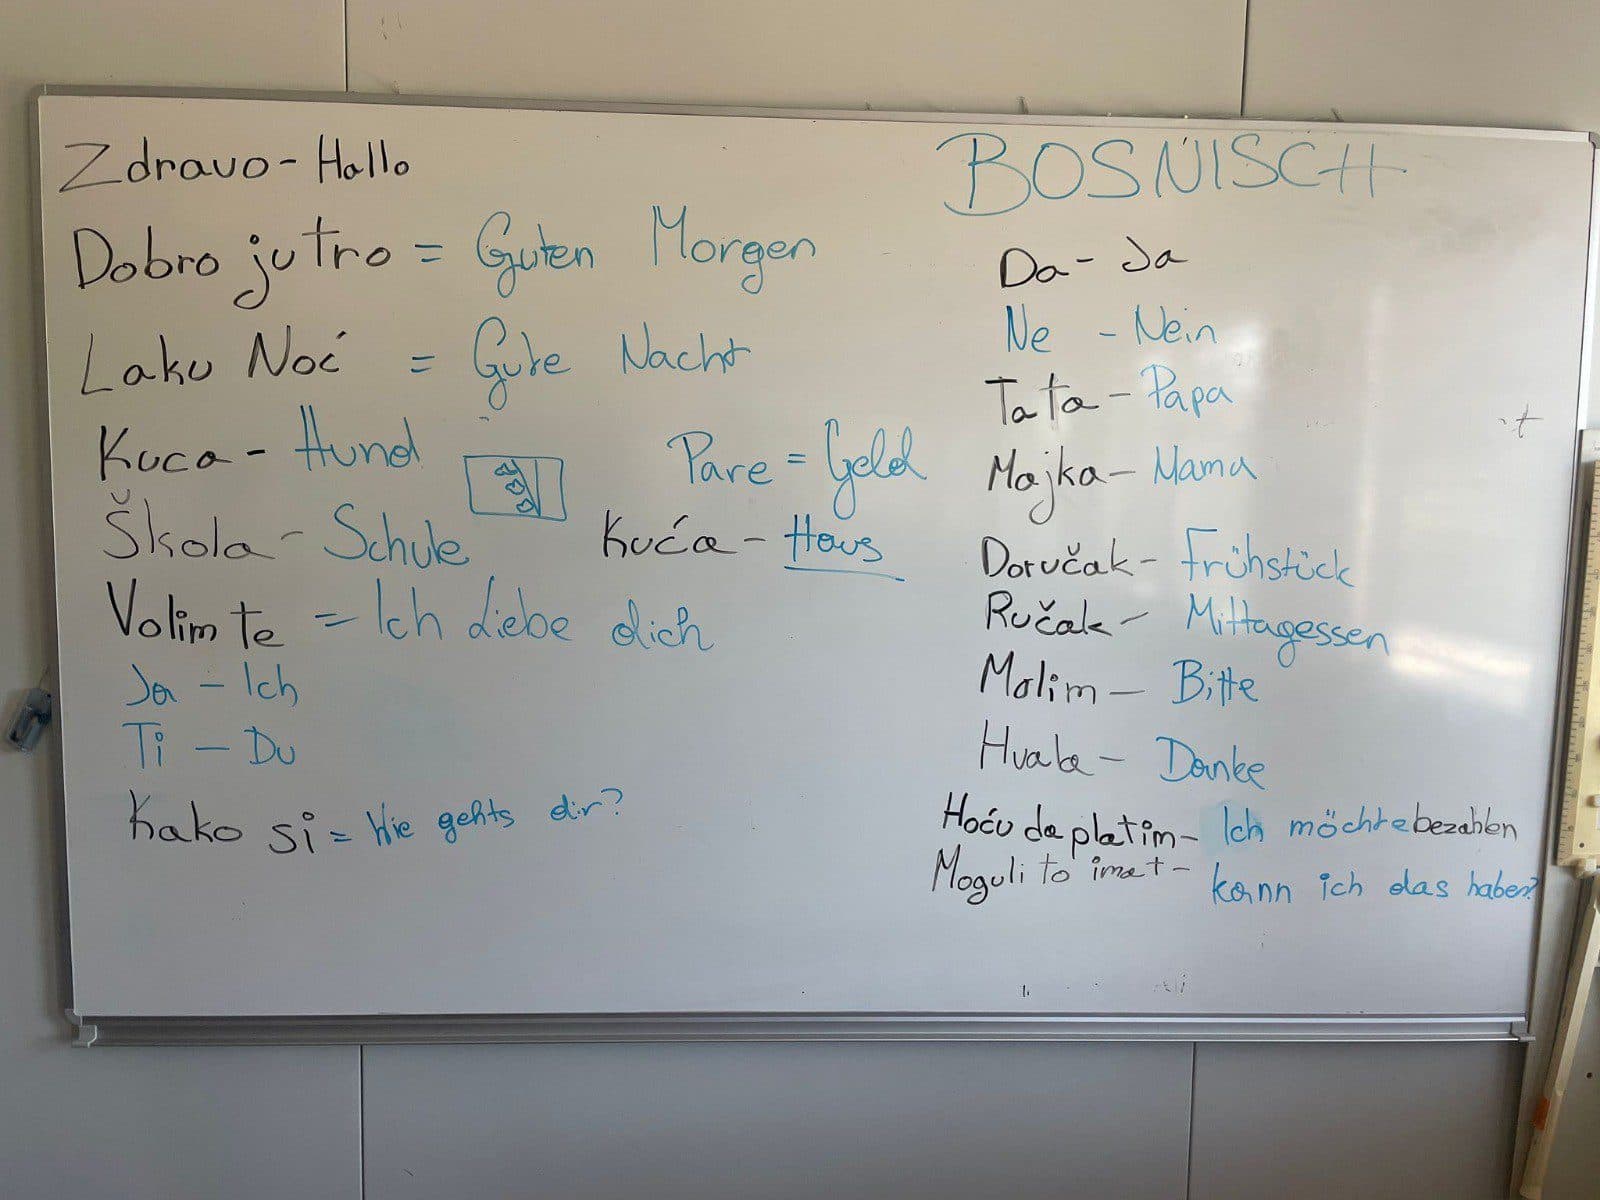 Zdravo - Hallo
Dobro jutro = Guten Morgen
Laku Noć = Gute Nacht
Kuca - Hund
Pare = Geld
Škola - Schule
Kuća - Haus
Volim te = Ich Liebe dich
Ja - Ich
Ti - Du
Kako si = Wie gehts dir?
BOSNISCH
Da - Ja
Ne - Nein
Tata - Papa
Majka - Mama
Doručak - Frühstück
Ručak - Mittagessen
Molim - Bitte
Hvala - Danke
Hoću da platim - Ich möchte bezahlen
Moguli to imat - kann ich das haben?